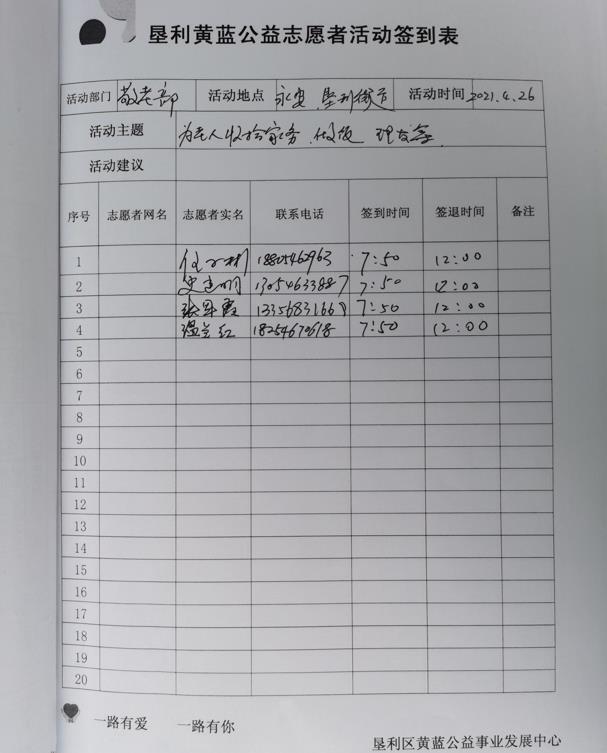 垦利黄蓝公益志愿者活动签到表
活动部门 敬老部 活动地点 永安 垦利街道 活动时间 2021.4.26
活动主题 为老人收拾家务 做饭 理发等
活动建议
序号 志愿者网名 志愿者实名 联系电话 签到时间 签退时间 备注
1 7:50 12:00
2 7:50 12:00
3 7:50 12:00
4 温兰红 18254670618 7:50 12:00
5
6
7
8
9
10
11
12
13
14
15
16
17
18
19
20
一路有爱 一路有你
垦利区黄蓝公益事业发展中心